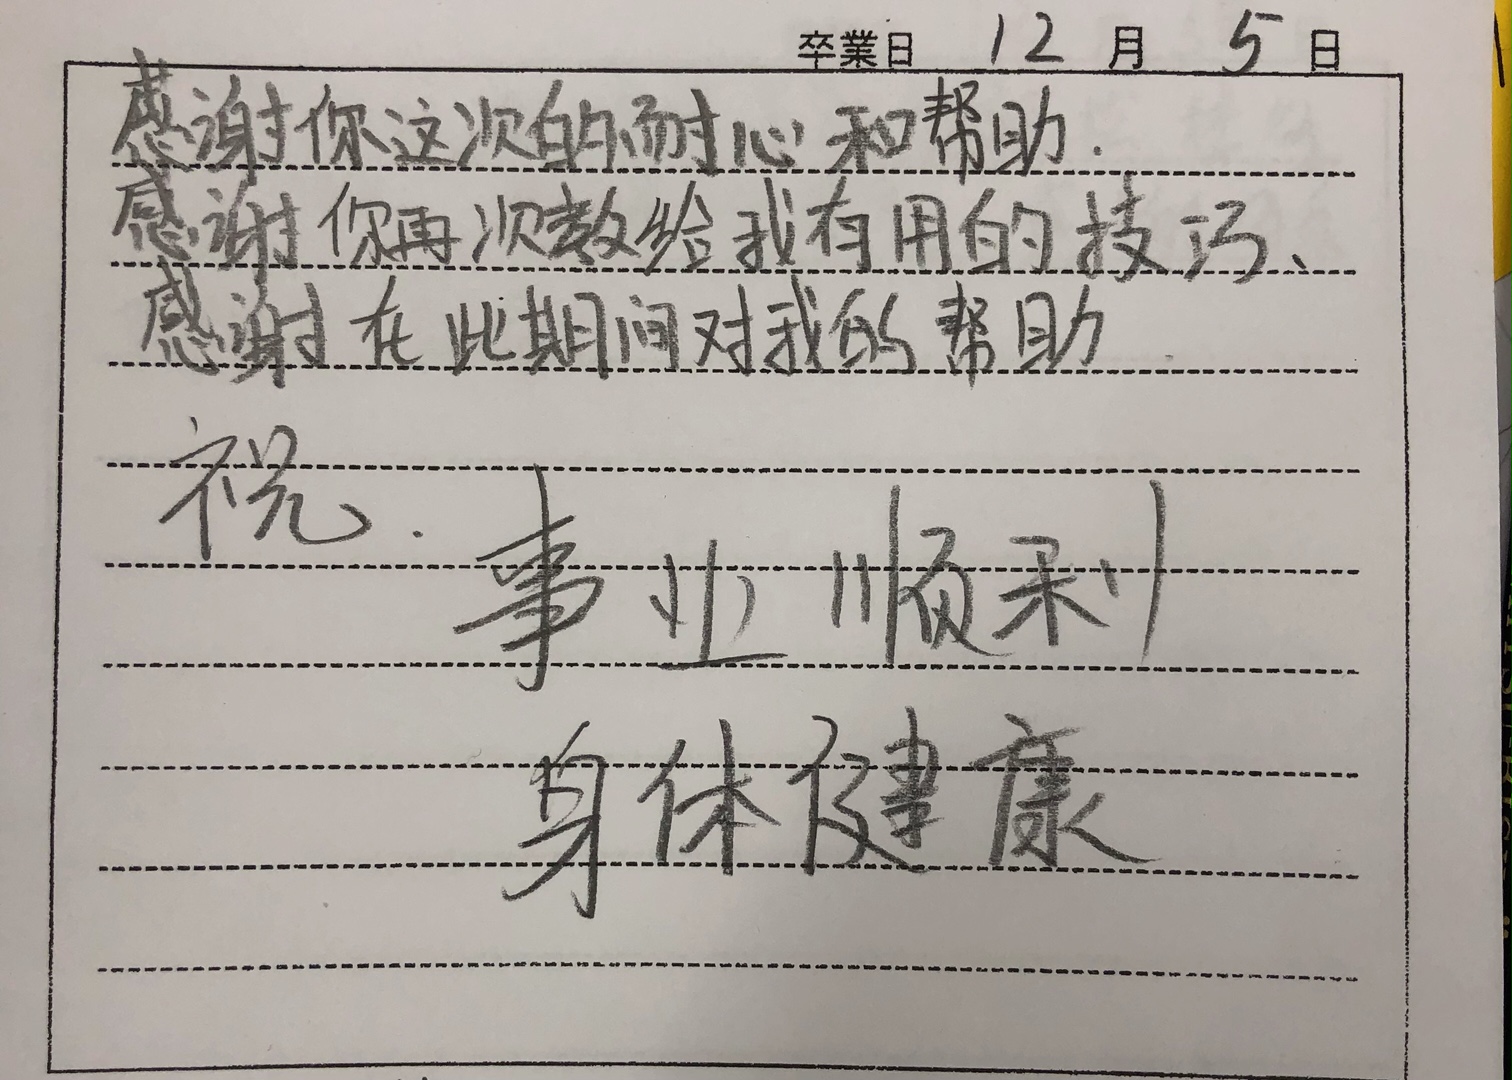 卒業日 12月 5日
感谢你这次的耐心和帮助.
感谢你再次教给我有用的技巧、
感谢在此期间对我的帮助
祝.
事业顺利
身体健康